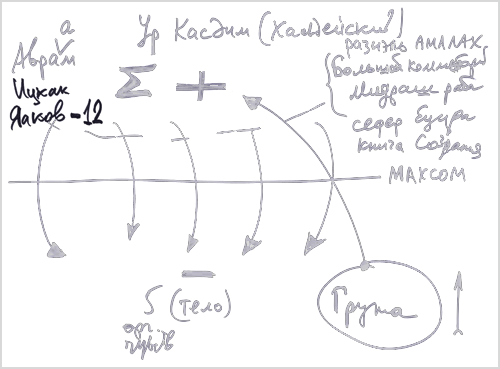 а
Ур Касдим (Халдейский)
Аврам
Ицхак
Яаков - 12
Σ +
развить АМАЛАХ
Большой комментарий
Мидраш раба
сефер Ецира
книга Создания
МАХСОМ
–
5 (тело)
орг.
чувств
Группа